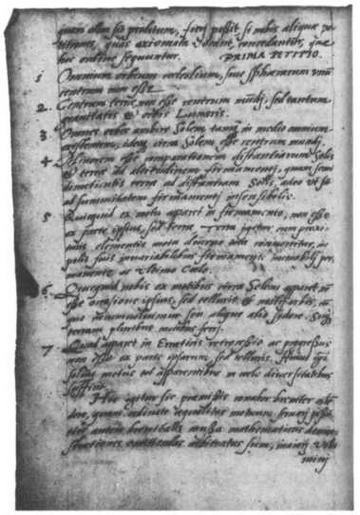 quam olim sit proditum, fieri possit, si nobis aliquæ pe
titiones, quas axiomata vocant, concedantur, quæ
hoc ordine sequuntur. PRIMA PETITIO.
1 Omnium orbium cælestium, sive sphærarum unum
centrum non esse
2. Centrum terræ non esse centrum mundi, sed tantum
gravitatis et orbis Lunaris.
3 Omnes orbes ambire Solem tanq in medio omnium
existentem, ideoq circa Solem esse centrum mundi.
4 Minorem esse comparationem distantiarum Solis
et terræ ad altitudinem firmamenti, quam semi
dimetientis terræ ad distantiam Solis, adeo ut sit
ad summitatem firmamenti insensibilis.
5 Quicquid ex motu apparet in firmamento, non esse
ex parte ipsius, sed terræ. Terra igitur cum proxi
mis elementis motu diurno tota convertitur, in
polis suis invariabilibus firmamento immobili per
manente ac ultimo Cælo.
6 Quicquid nobis ex motibus circa Solem apparet non
esse occasione ipsius, sed telluris et nostri orbis, cum
quo aliquo alio sydere. Sicq
terram pluribus motibus ferri.
7 Quod apparet in Erraticis retrocessio ac progressus
non esse ex parte ipsarum, sed telluris. Huius igitur
solius motus tot apparentibus in cælo diversitatibus
sufficit.
His igitur sic præmissis conabor breviter osten
dere, quam ordinate æqualitas motuum servari possit
Hic autem brevitatis causa mathematicas demon
strationes omittendas arbitratus sum, maiori volu
mini